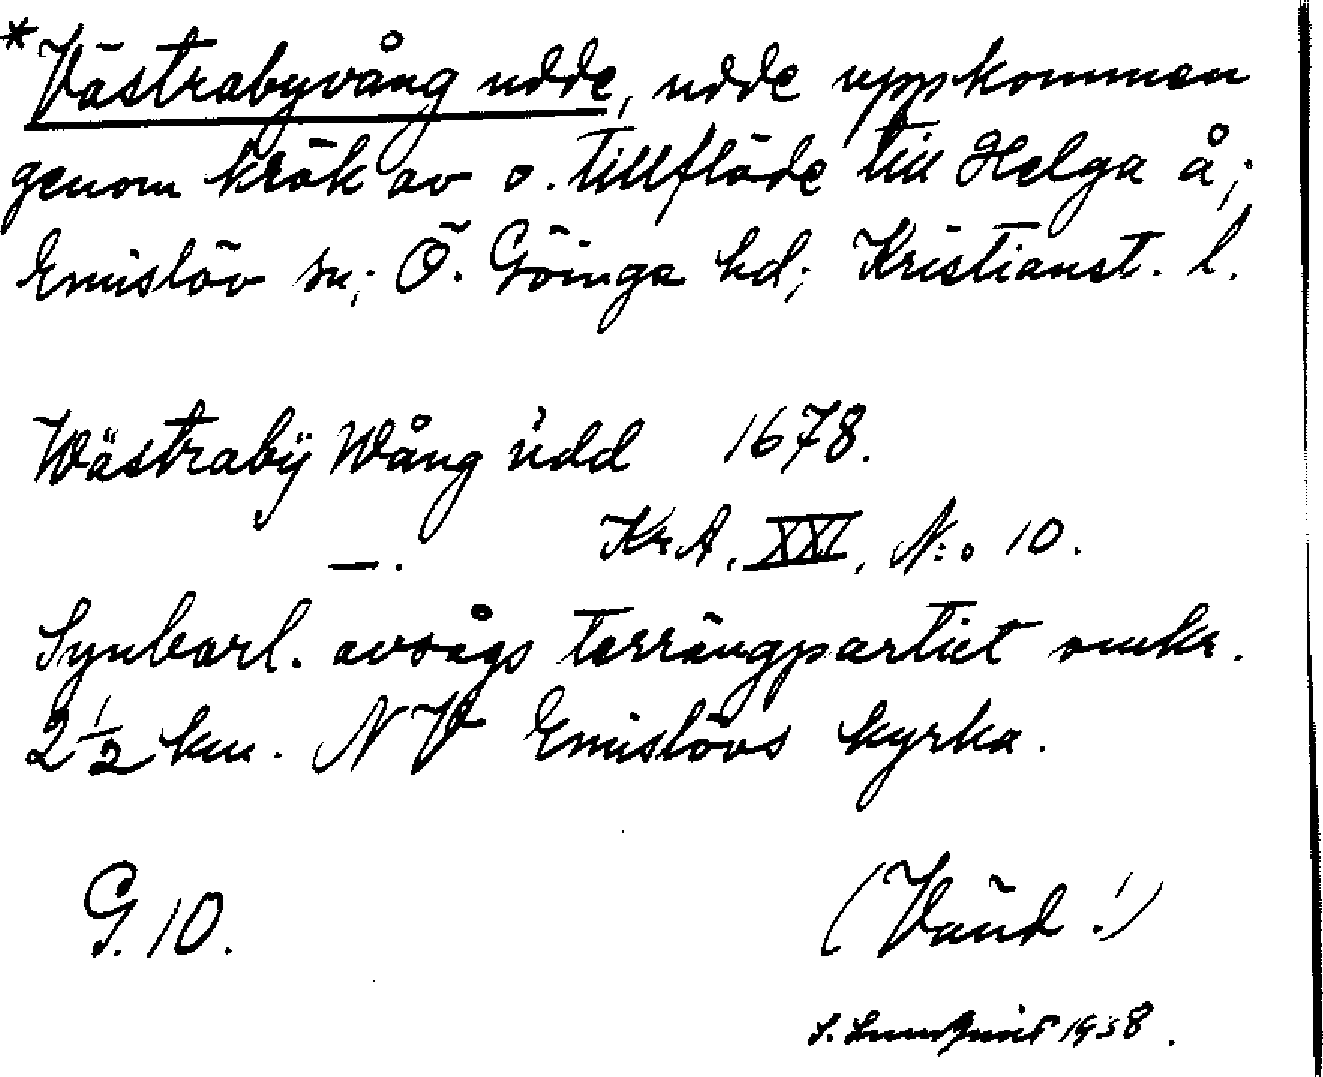 *Västrabyvång udde, udde uppkommen
genom krök av o. tillflöde till Helga å;
Emislöv sn; Ö. Göinge hd; Kristianst. l.
Wästrabÿ Wång údd 1678.
—. Kr.A, XXI, N:o 10.
Synbarl. avsågs terrängpartiet omkr.
2 1/2 km. NV Emislövs kyrka.
G. 10.
(Vänd!)
S. Lundquist 1938.